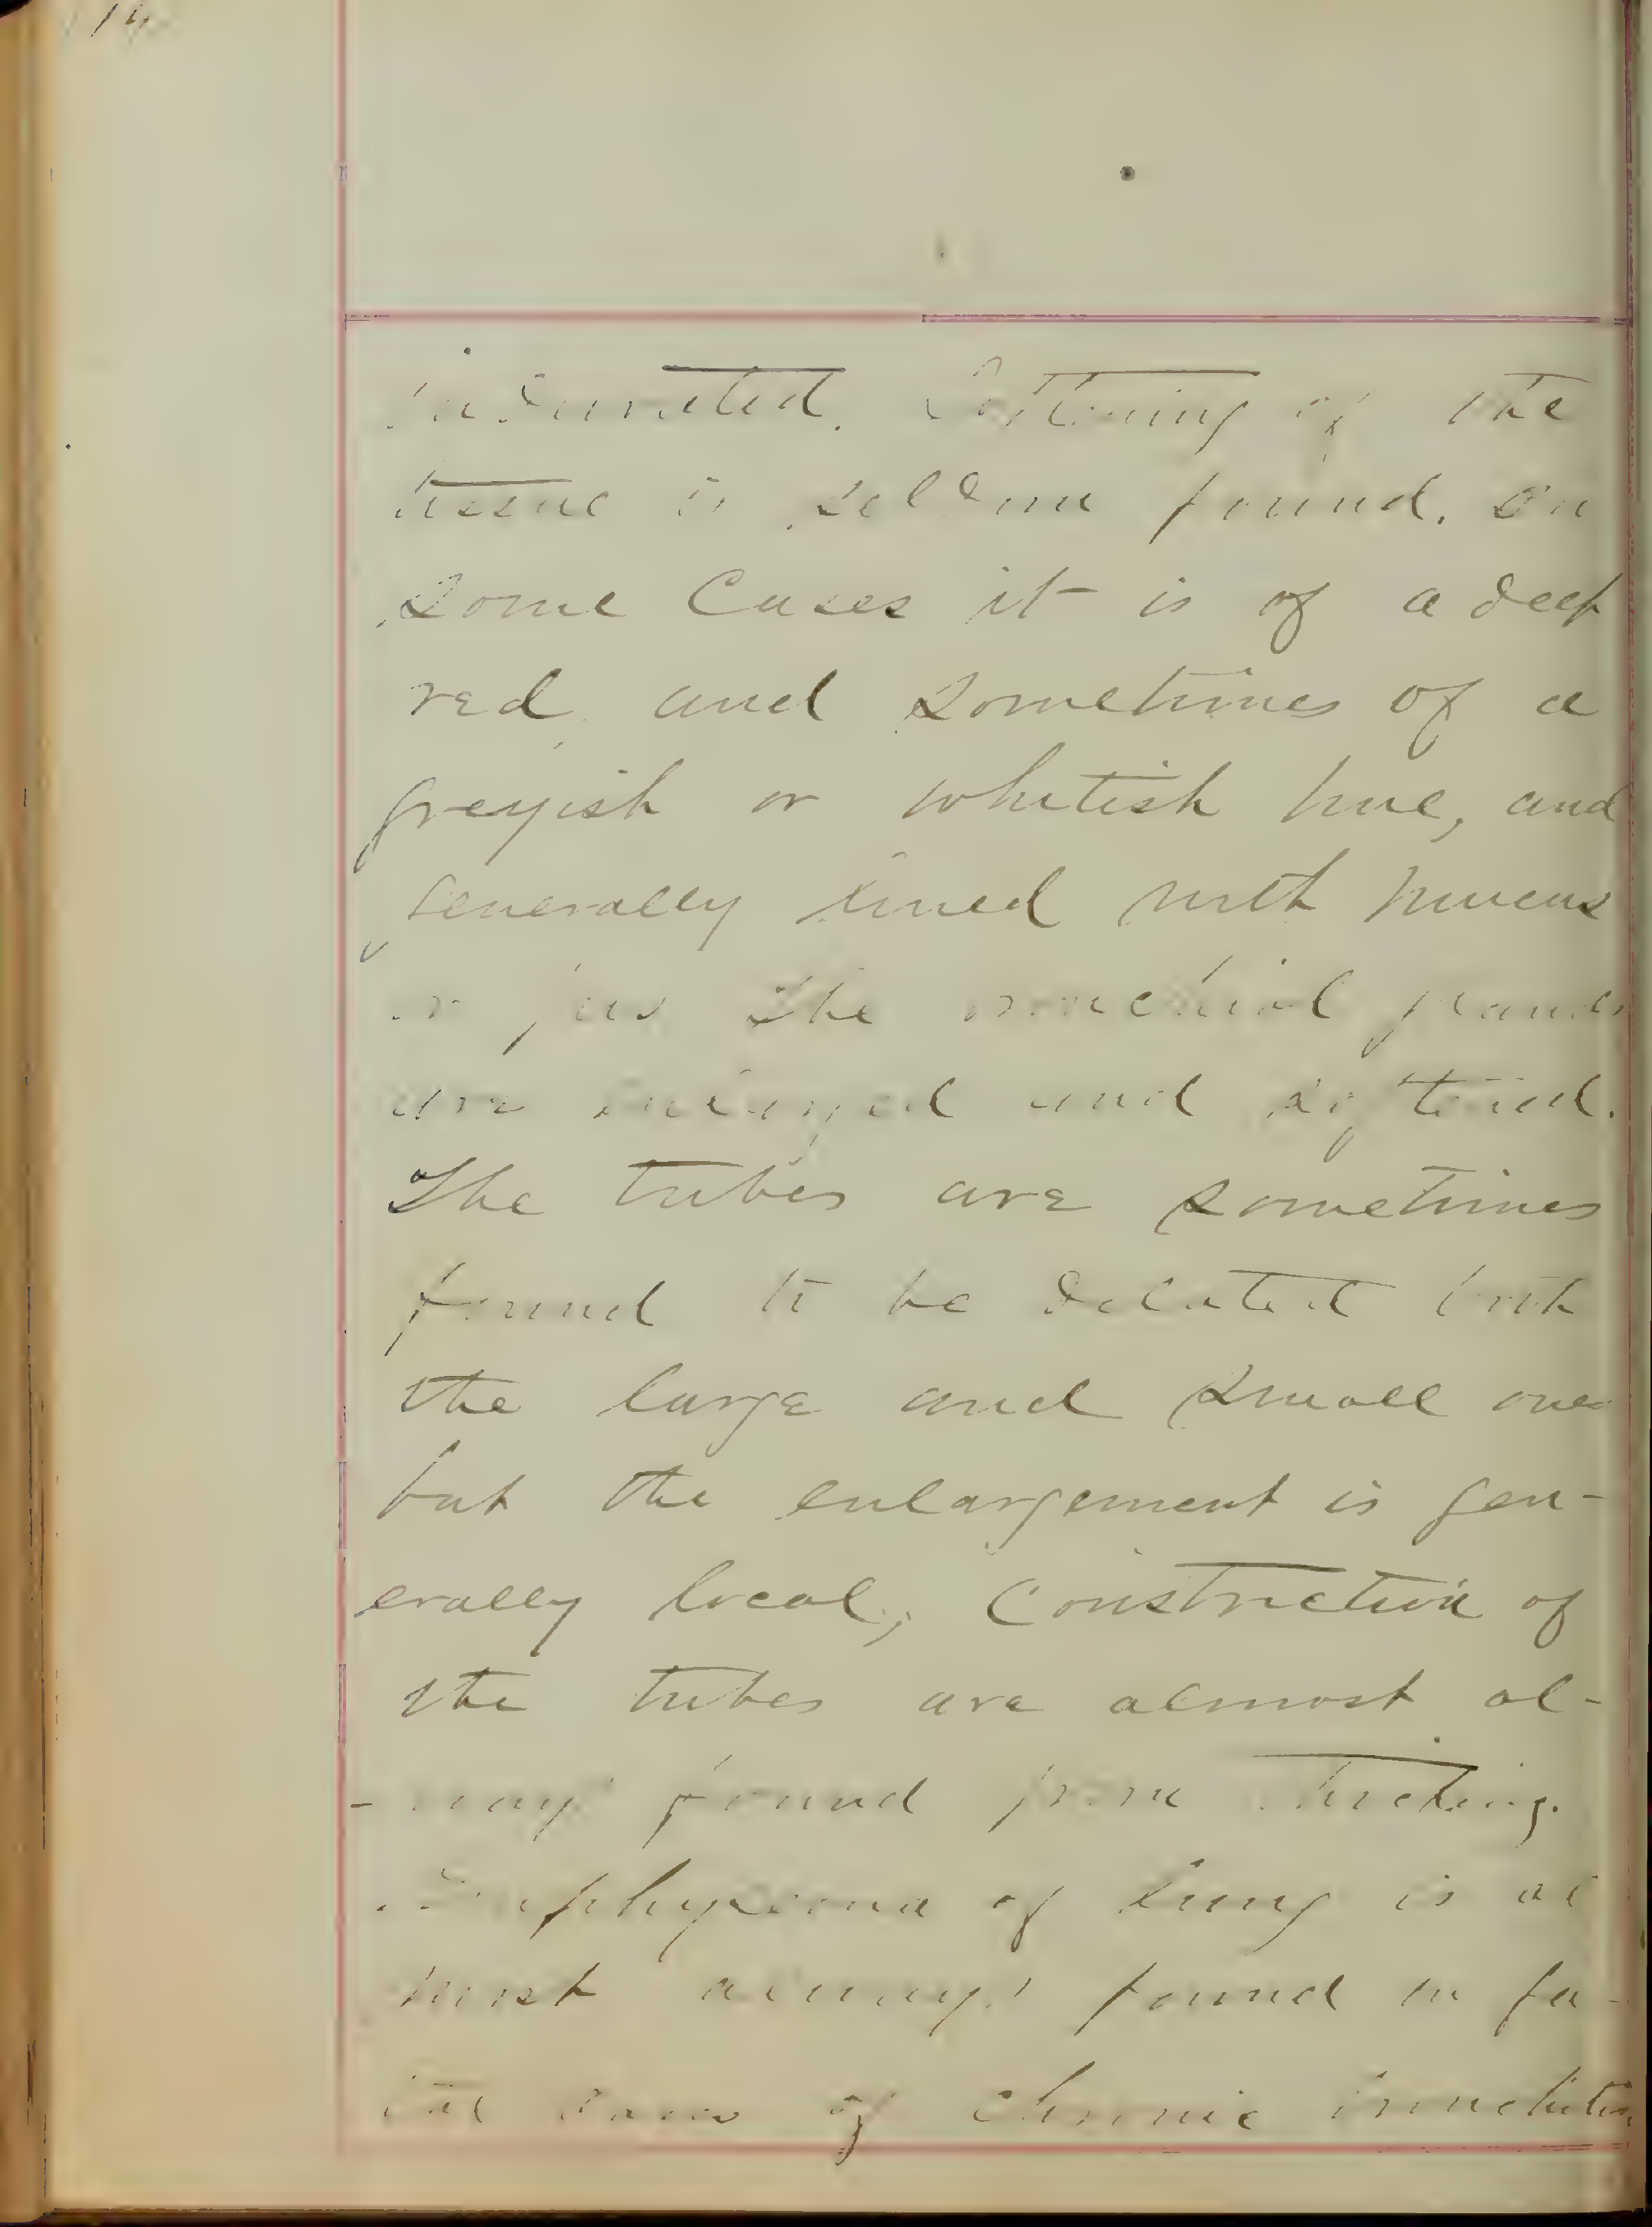 14
indurated. Softening of the
tissue is seldom found. In
some Cases it is of a deep
red and sometimes of a
greyish or whitish hue, and
generally lined with mucus
or pus The bronchial glands
are enlarged and softened.
The tubes are sometimes
found to be dilated both
the large and small ones
but the enlargement is gen-
erally local; Constriction of
the tubes are almost al-
-ways found from
Emphysema of lung is al
most always found in fa-
tal cases of chronic bronchitis